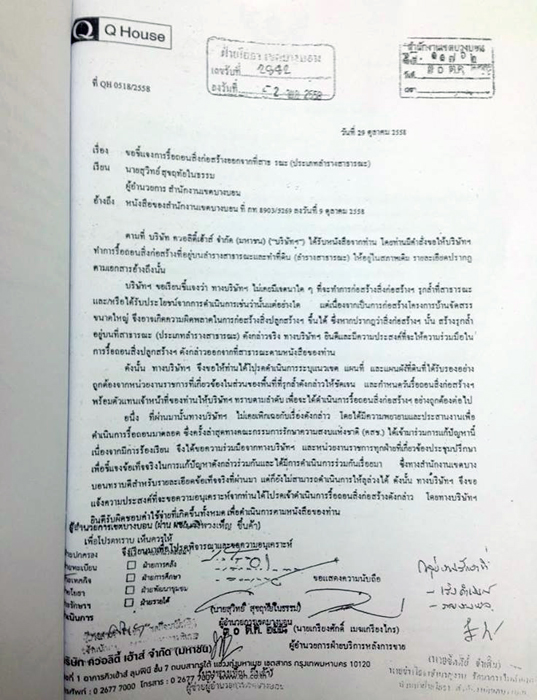 Q Q House
ฝ่ายโยธา เขตบางบอน
เลขรับที่ 2842
ลงวันที่ 2 2558
สำนักงานเขตบางบอน
วันที่ 30 ต.ค.
ที่ QH 0518/2558
วันที่ 29 ตุลาคม 2558
เรื่อง ขอชี้แจงการรื้อถอนสิ่งก่อสร้างออกจากที่สาธารณะ (ประเภทลำรางสาธารณะ)
เรียน นายสุวิทย์ สุขฤทัยในธรรม
ผู้อำนวยการ สำนักงานเขตบางบอน
อ้างถึง หนังสือของสำนักงานเขตบางบอน ที่ กท 8903/5269 ลงวันที่ 9 ตุลาคม 2558
ตามที่ บริษัท ควอลิตี้เฮ้าส์ จำกัด (มหาชน) ("บริษัทฯ") ได้รับหนังสือจากท่าน โดยท่านมีคำสั่งขอให้บริษัทฯ
ทำการรื้อถอนสิ่งก่อสร้างที่อยู่บนลำรางสาธารณะและทำที่ดิน (ลำรางสาธารณะ) ให้อยู่ในสภาพเดิม รายละเอียดปรากฏ
ตามเอกสารอ้างถึงนั้น
บริษัทฯ ขอเรียนชี้แจงว่า ทางบริษัทฯ ไม่เคยมีเจตนาใด ๆ ที่จะทำการก่อสร้างสิ่งก่อสร้างฯ รุกล้ำที่สาธารณะ
และ/หรือได้รับประโยชน์จากการดำเนินการเช่นว่านั้นแต่อย่างใด แต่เนื่องจากเป็นการก่อสร้างโครงการบ้านจัดสรร
ขนาดใหญ่ จึงอาจเกิดความผิดพลาดในการก่อสร้างสิ่งปลูกสร้างฯ ขึ้นได้ ซึ่งหากปรากฏว่าสิ่งก่อสร้างฯ นั้น สร้างรุกล้ำ
อยู่บนที่สาธารณะ (ประเภทลำรางสาธารณะ) ดังกล่าวจริง ทางบริษัทฯ ยินดีและมีความประสงค์ที่จะให้ความร่วมมือใน
การรื้อถอนสิ่งปลูกสร้างฯ ดังกล่าวออกจากที่สาธารณะตามหนังสือของท่าน
ดังนั้น ทางบริษัทฯ จึงขอให้ท่านได้โปรดดำเนินการระบุแนวเขต แผนที่ และแผนผังที่ดินที่ได้รับรองอย่าง
ถูกต้องจากหน่วยงานราชการที่เกี่ยวข้องในส่วนของพื้นที่ที่รุกล้ำดังกล่าวให้ชัดเจน และกำหนดวันรื้อถอนสิ่งก่อสร้างฯ
พร้อมตัวแทนเจ้าหน้าที่ของท่านให้บริษัทฯ ทราบตามลำดับ เพื่อจะได้ดำเนินการรื้อถอนสิ่งก่อสร้างฯ อย่างถูกต้องต่อไป
อนึ่ง ที่ผ่านมานั้นทางบริษัทฯ ไม่เคยเพิกเฉยกับเรื่องดังกล่าว โดยได้มีความพยายามและประสานงานเพื่อ
ดำเนินการรื้อถอนมาตลอด ซึ่งครั้งล่าสุดทางคณะกรรมการรักษาความสงบแห่งชาติ (คสช.) ได้เข้ามาร่วมการแก้ปัญหานี้
เนื่องจากมีการร้องเรียน จึงได้ขอความร่วมมือจากทางบริษัทฯ และหน่วยงานราชการทุกฝ่ายที่เกี่ยวข้องประชุมปรึกษา
เพื่อชี้แจงข้อเท็จจริงในการแก้ปัญหาดังกล่าวร่วมกันและได้มีการดำเนินการร่วมกันเรื่อยมา ซึ่งทางสำนักงานเขตบาง
บอนทราบดีสำหรับรายละเอียดข้อเท็จจริงที่ผ่านมา แต่ก็ยังไม่สามารถดำเนินการให้ลุล่วงได้ ดังนั้น ทางบริษัทฯ จึงขอ
แจ้งความประสงค์ที่จะขอความอนุเคราะห์จากท่านได้โปรดเข้าดำเนินการรื้อถอนสิ่งก่อสร้างดังกล่าว โดยทางบริษัทฯ
ยินดีรับผิดชอบค่าใช้จ่ายที่เกิดขึ้นทั้งหมด เพื่อดำเนินการตามหนังสือของท่าน
ผู้อำนวยการเขตบางบอน
เพื่อโปรดทราบ เห็นควรให้
จึงเรียนมาเพื่อโปรดพิจารณาและขอความอนุเคราะห์
ฝ่ายการคลัง
ฝ่ายการศึกษา
ฝ่ายพัฒนาชุมชน
ฝ่ายรายได้
ขอแสดงความนับถือ
(นายสุวิทย์ สุขฤทัยในธรรม)
ผู้อำนวยการเขตบางบอน
30 ต.ค. 2558
(นายเกรียงศักดิ์ เมฆเกรียงไกร)
ผู้อำนวยการฝ่ายบริหารหลังการขาย
บริษัท ควอลิตี้ เฮ้าส์ จำกัด (มหาชน)
เลขที่ 1 อาคารคิวเฮ้าส์ ลุมพินี ชั้น 7 ถนนสาทรใต้ แขวงทุ่งมหาเมฆ เขตสาทร กรุงเทพมหานคร 10120
โทรศัพท์ : 0 2677 7000 โทรสาร : 0 2677